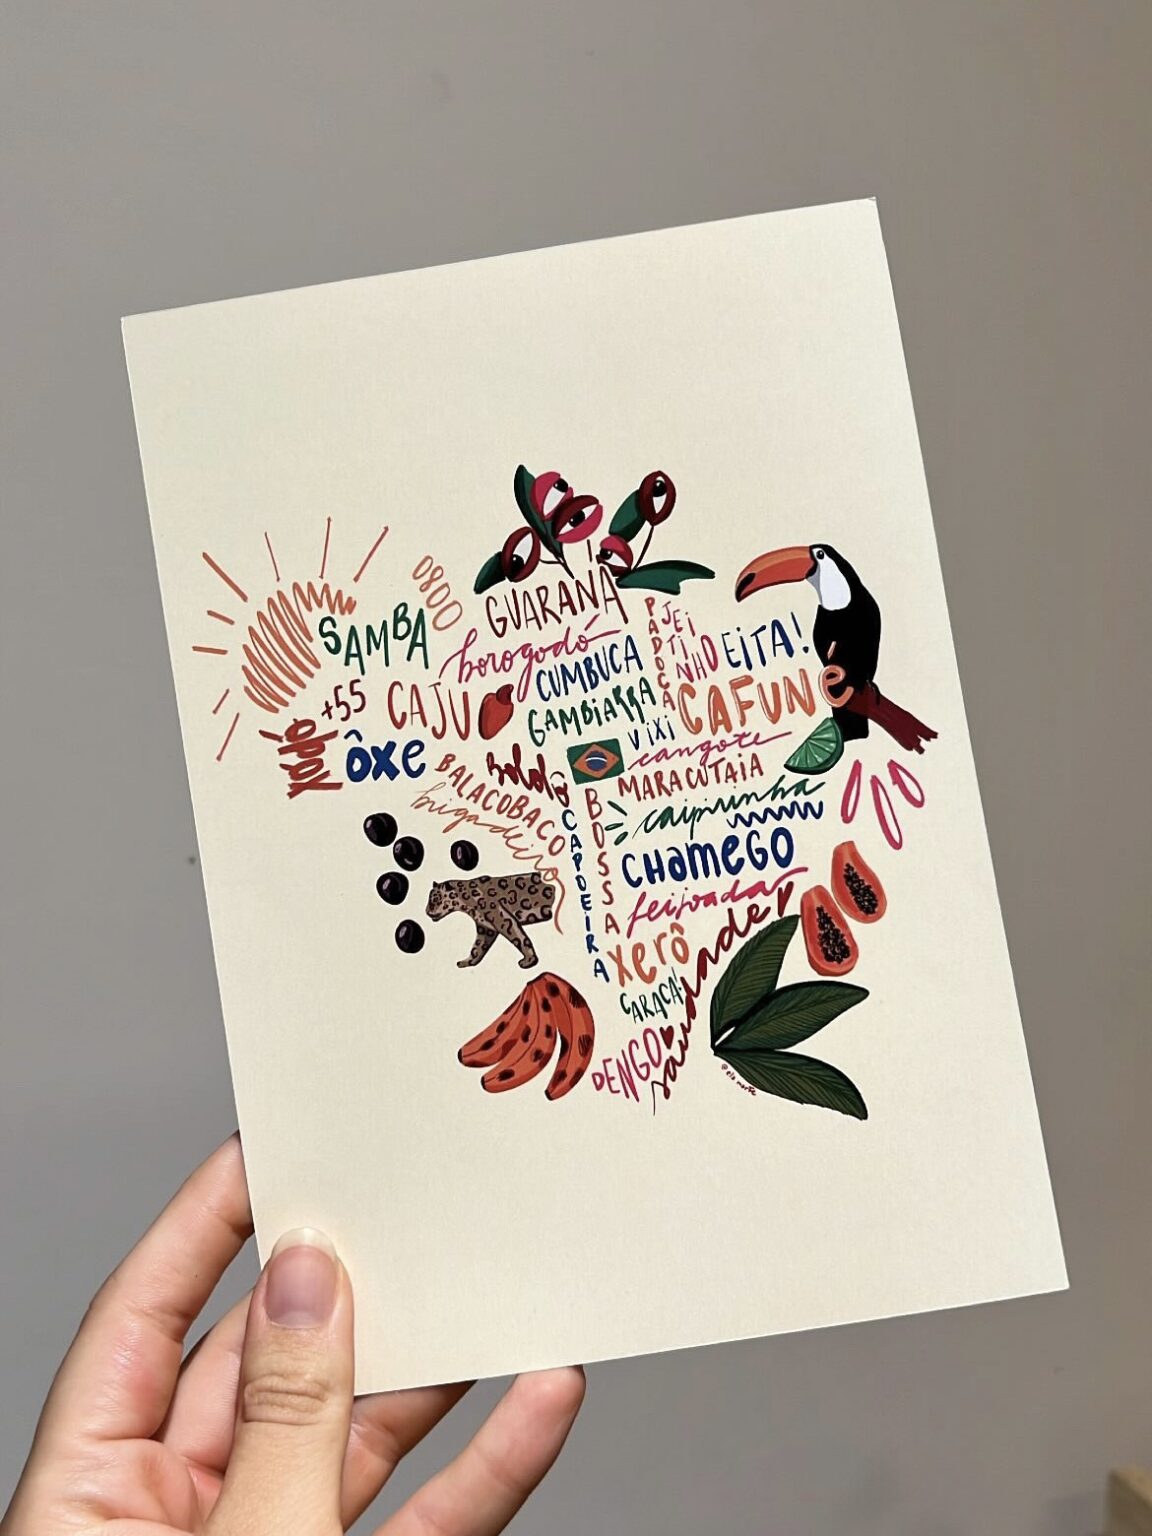 0800
GUARANÁ
SAMBA
borogodó
PADOCA
JEITINHO
EITA!
+55
CAJU
CUMBUCA
GAMBIARRA
CAFUNÉ
xodó
ôxe
VIXI
cangote
BALACOBACO
MARACUTAIA
brigadeiro
CAPOEIRA
BOSSA
caipirinha
CHAMEGO
feijoada
xerô
CARACA!
saudade
DENGO